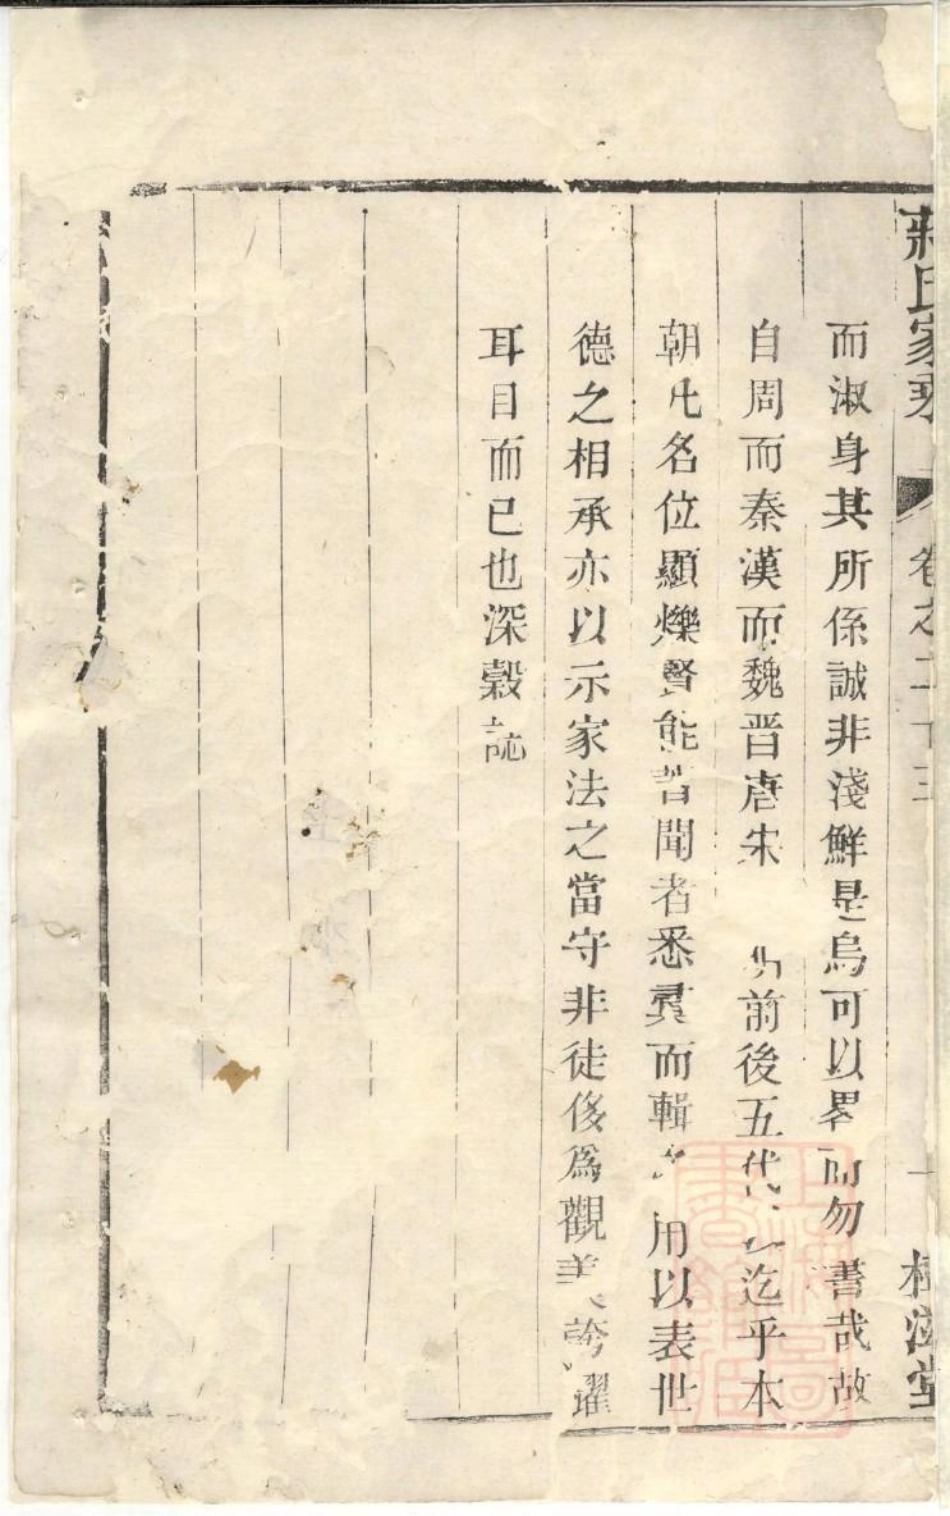 蔣氏家乘 卷之二十三 一
而淑身其所係誠非淺鮮是烏可以畧而勿書哉故
自周而秦漢而魏晋唐宋 前後五代迄乎本
朝凡名位顯爍賢能皆聞者悉彚而輯 用以表世
德之相承亦以示家法之當守非徒侈爲觀美誇耀
耳目而已也深穀誌